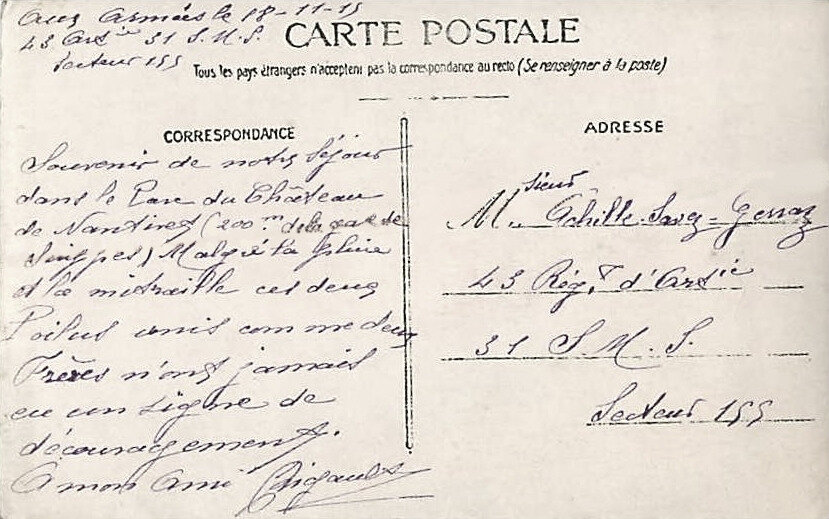 Aux Armées le 18-11-15
43 Artie 31 S.M.S.
Secteur 155
CARTE POSTALE
Tous les pays étrangers n'acceptent pas la correspondance au recto (Se renseigner à la poste)
CORRESPONDANCE
Souvenir de notre Séjour
dans le Parc du Château
de (200m de la gare de
Suippes) Malgré la pluie
et la mitraille ces deux
Poilus unis comme deux
Frères n'ont jamais
eu un signe de
découragement.
A mon Ami Rigault
ADRESSE
Msieur Achille
43 Régt d'Artie
31 S M. S.
Secteur 155